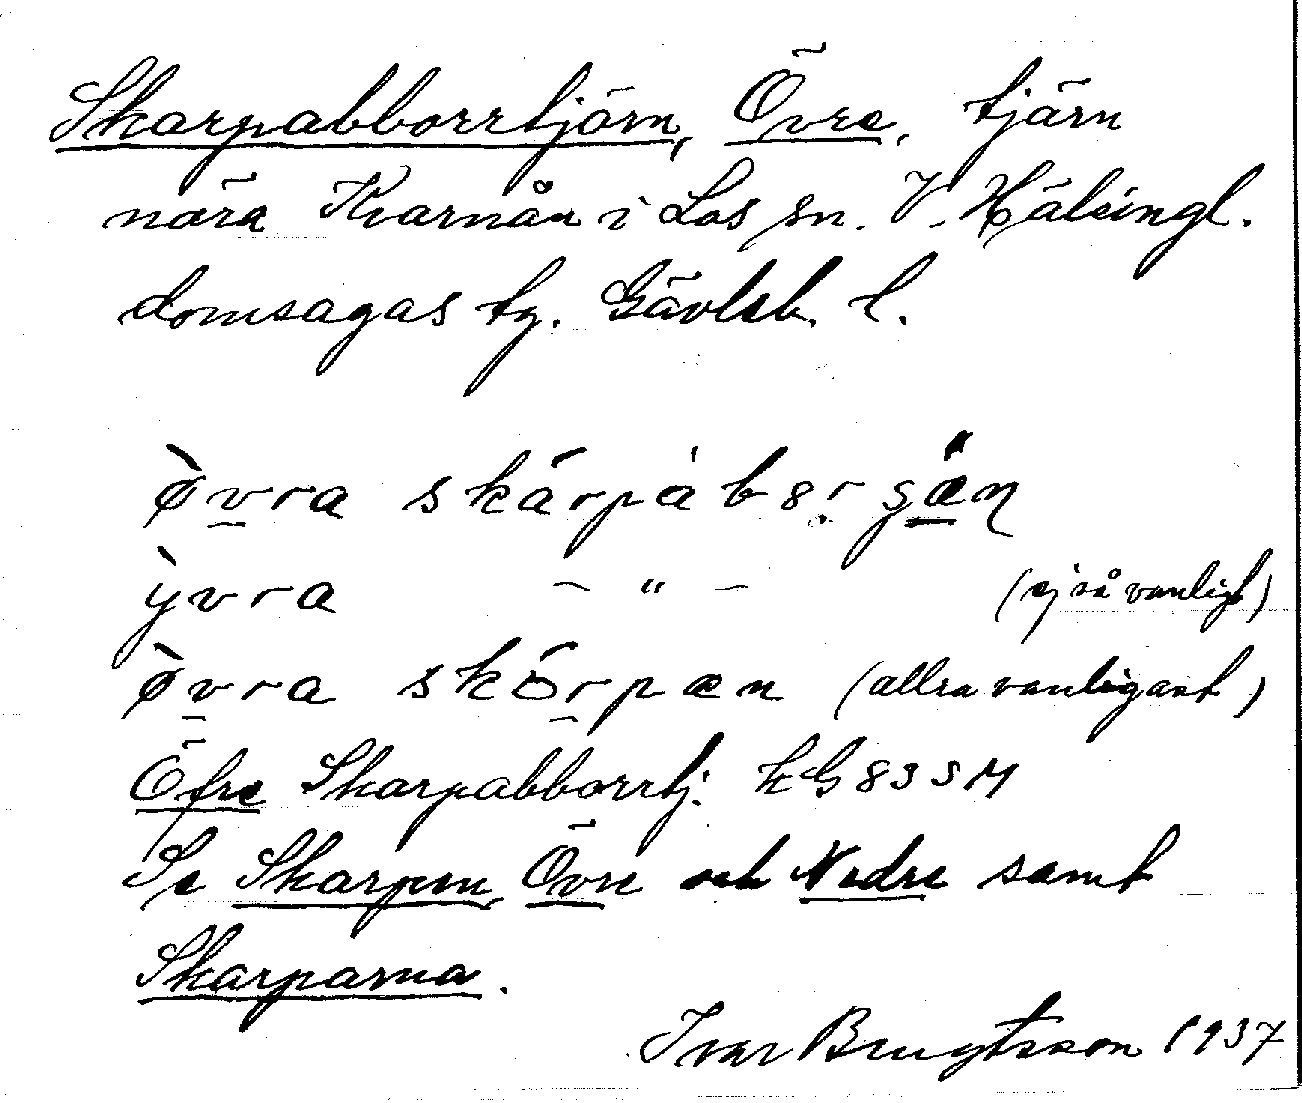 Skarpabborrtjärn, Övre, tjärn
nära Kvarnån i Los sn. V. Hälsingl.
domsagas tg. Gävleb. l.
ø̀vra skárpàbȯrgän
ỳvra – " – (ej så vanligt)
ø̀vra skö́rpæn (allra vanligast)
Öfre Skarpabborrtj. kG 83 SM
Se Skarpen, Övre och Nedre samt
Skarparna.
Ivar Bengtsson 1937